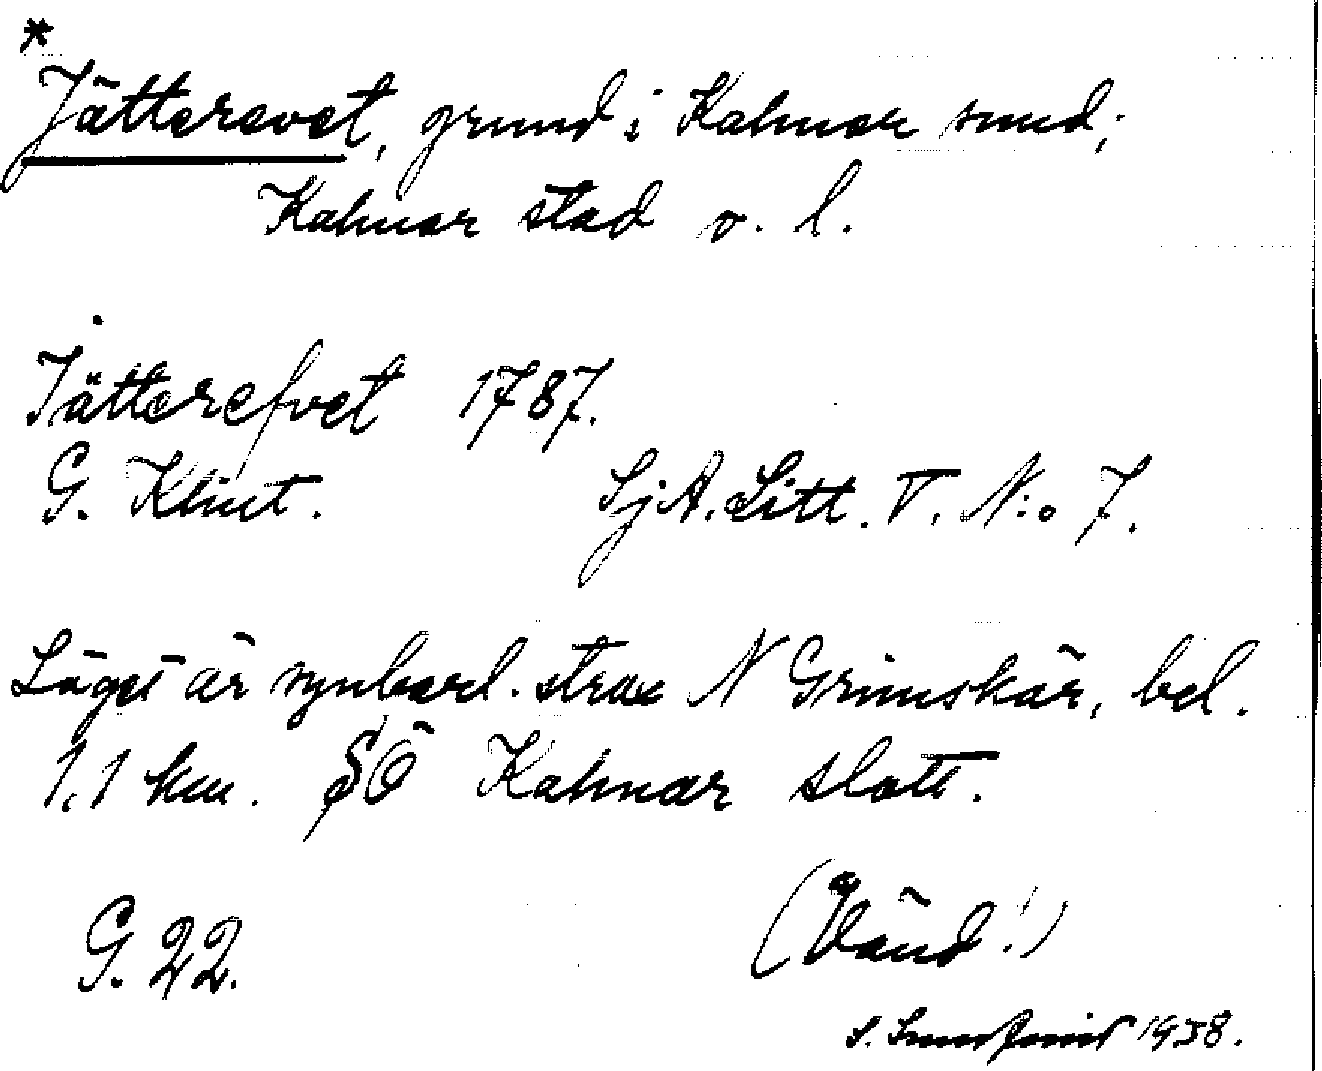 *
Jätterevet, grund i Kalmar sund;
Kalmar stad o. l.
Jätterefvet 1787.
G. Klint. SjA. Litt. V. N:o 7.
Läget är synbarl. strax N Grimskär, bel.
1,1 km. SÖ Kalmar slott.
G. 22. (Vänd!)
S. 1938.